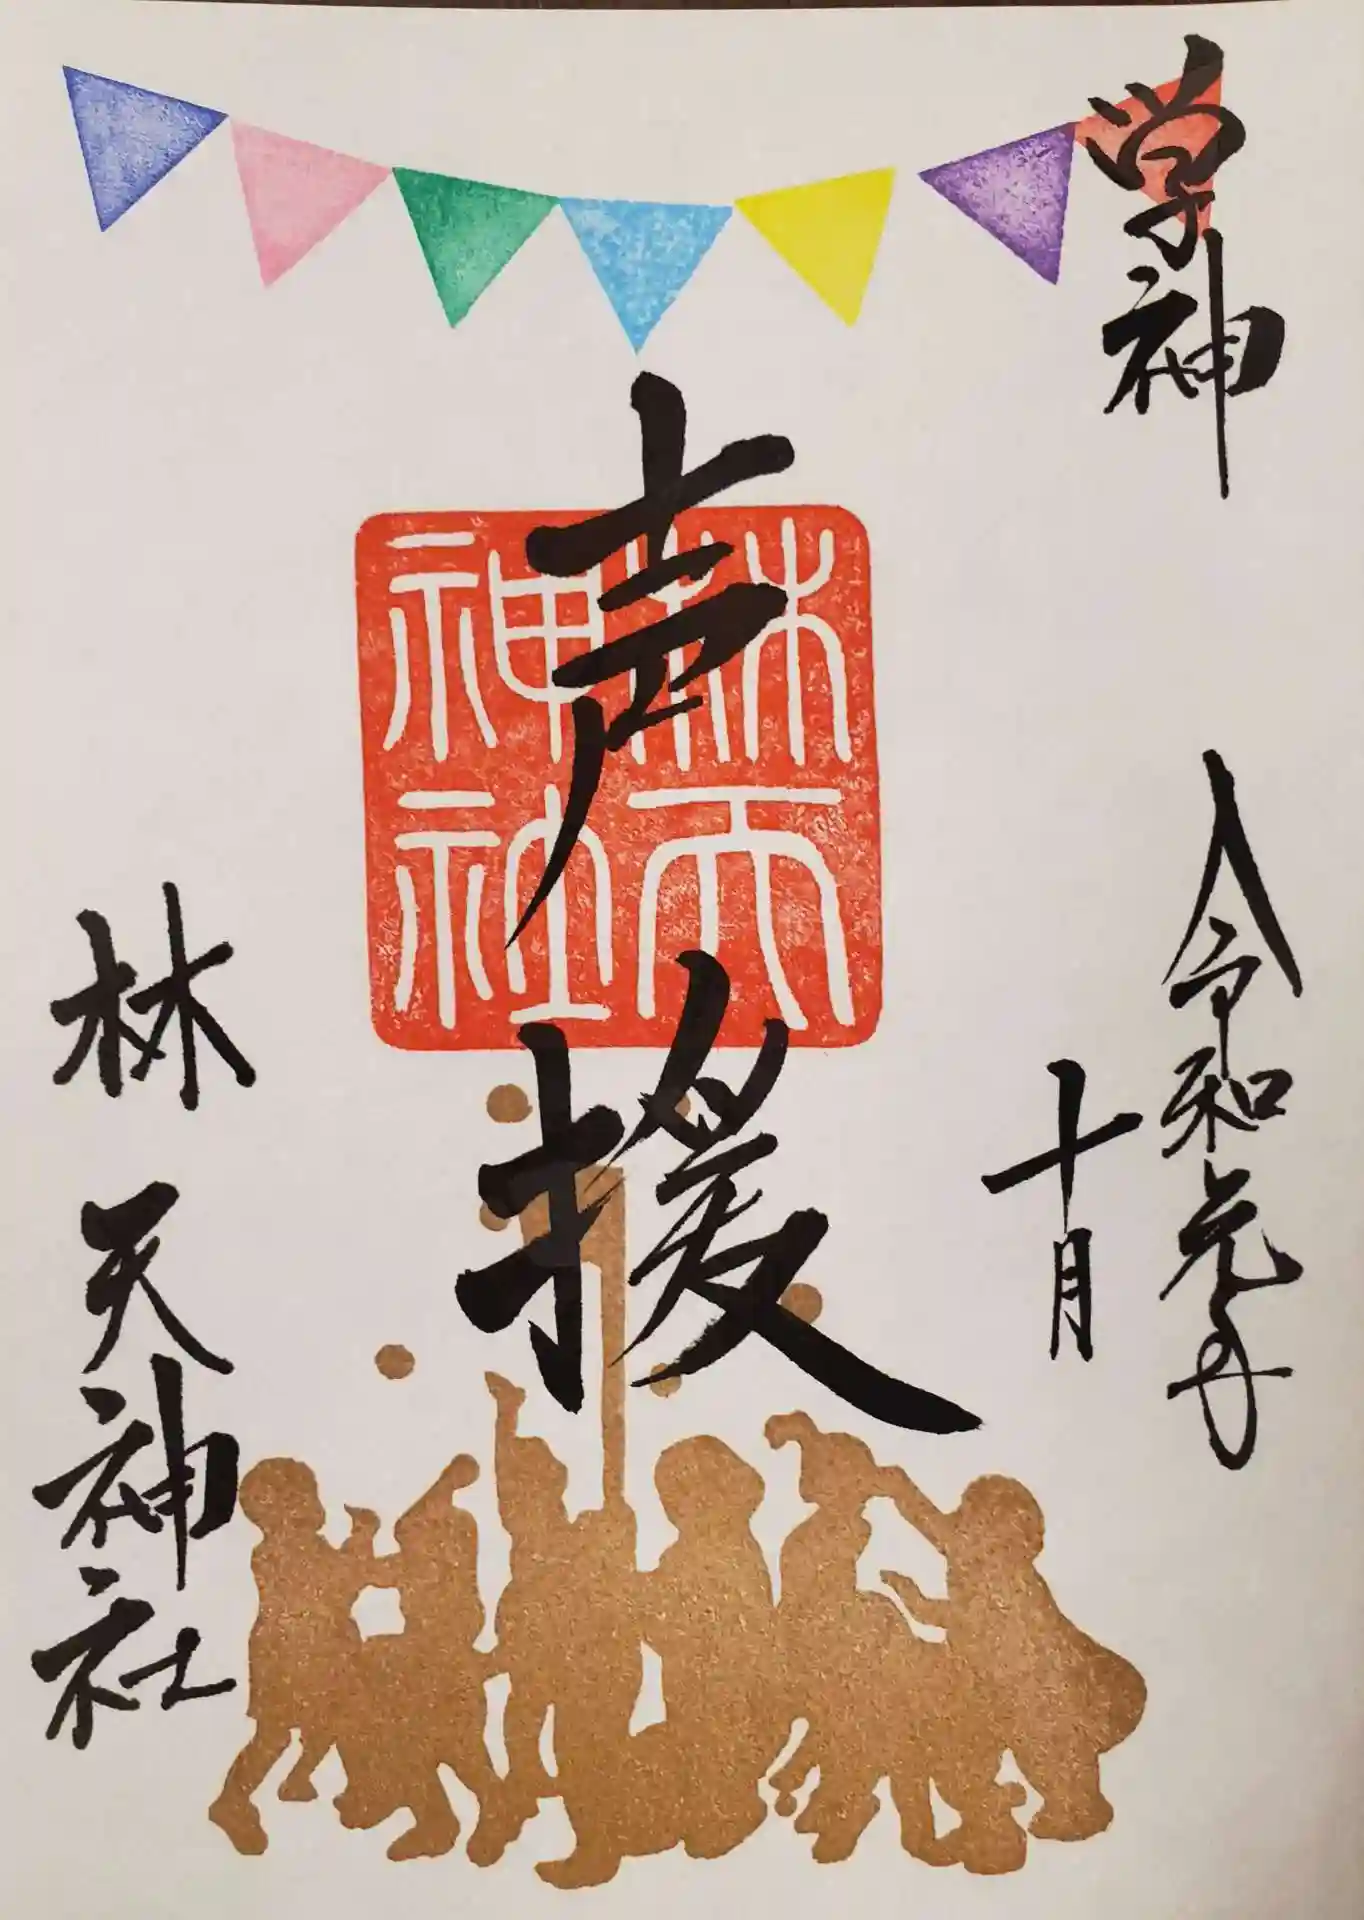 学神
令和元年
十月
声援
林天神社
林天神社